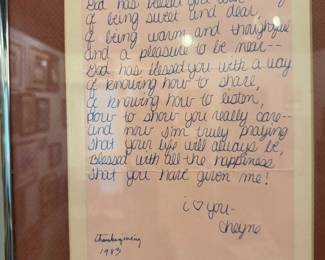 God has blessed you with
of being sweet and dear,
of being warm and thoughtful
and a pleasure to be near--
God has blessed you with a way
of knowing how to share,
of knowing how to listen,
how to show you really care--
and now i'm truly praying
that your life will always be
blessed with all the happiness
that you have given me!
i ♡ you-
Cheyne
Thanksgiving
1983